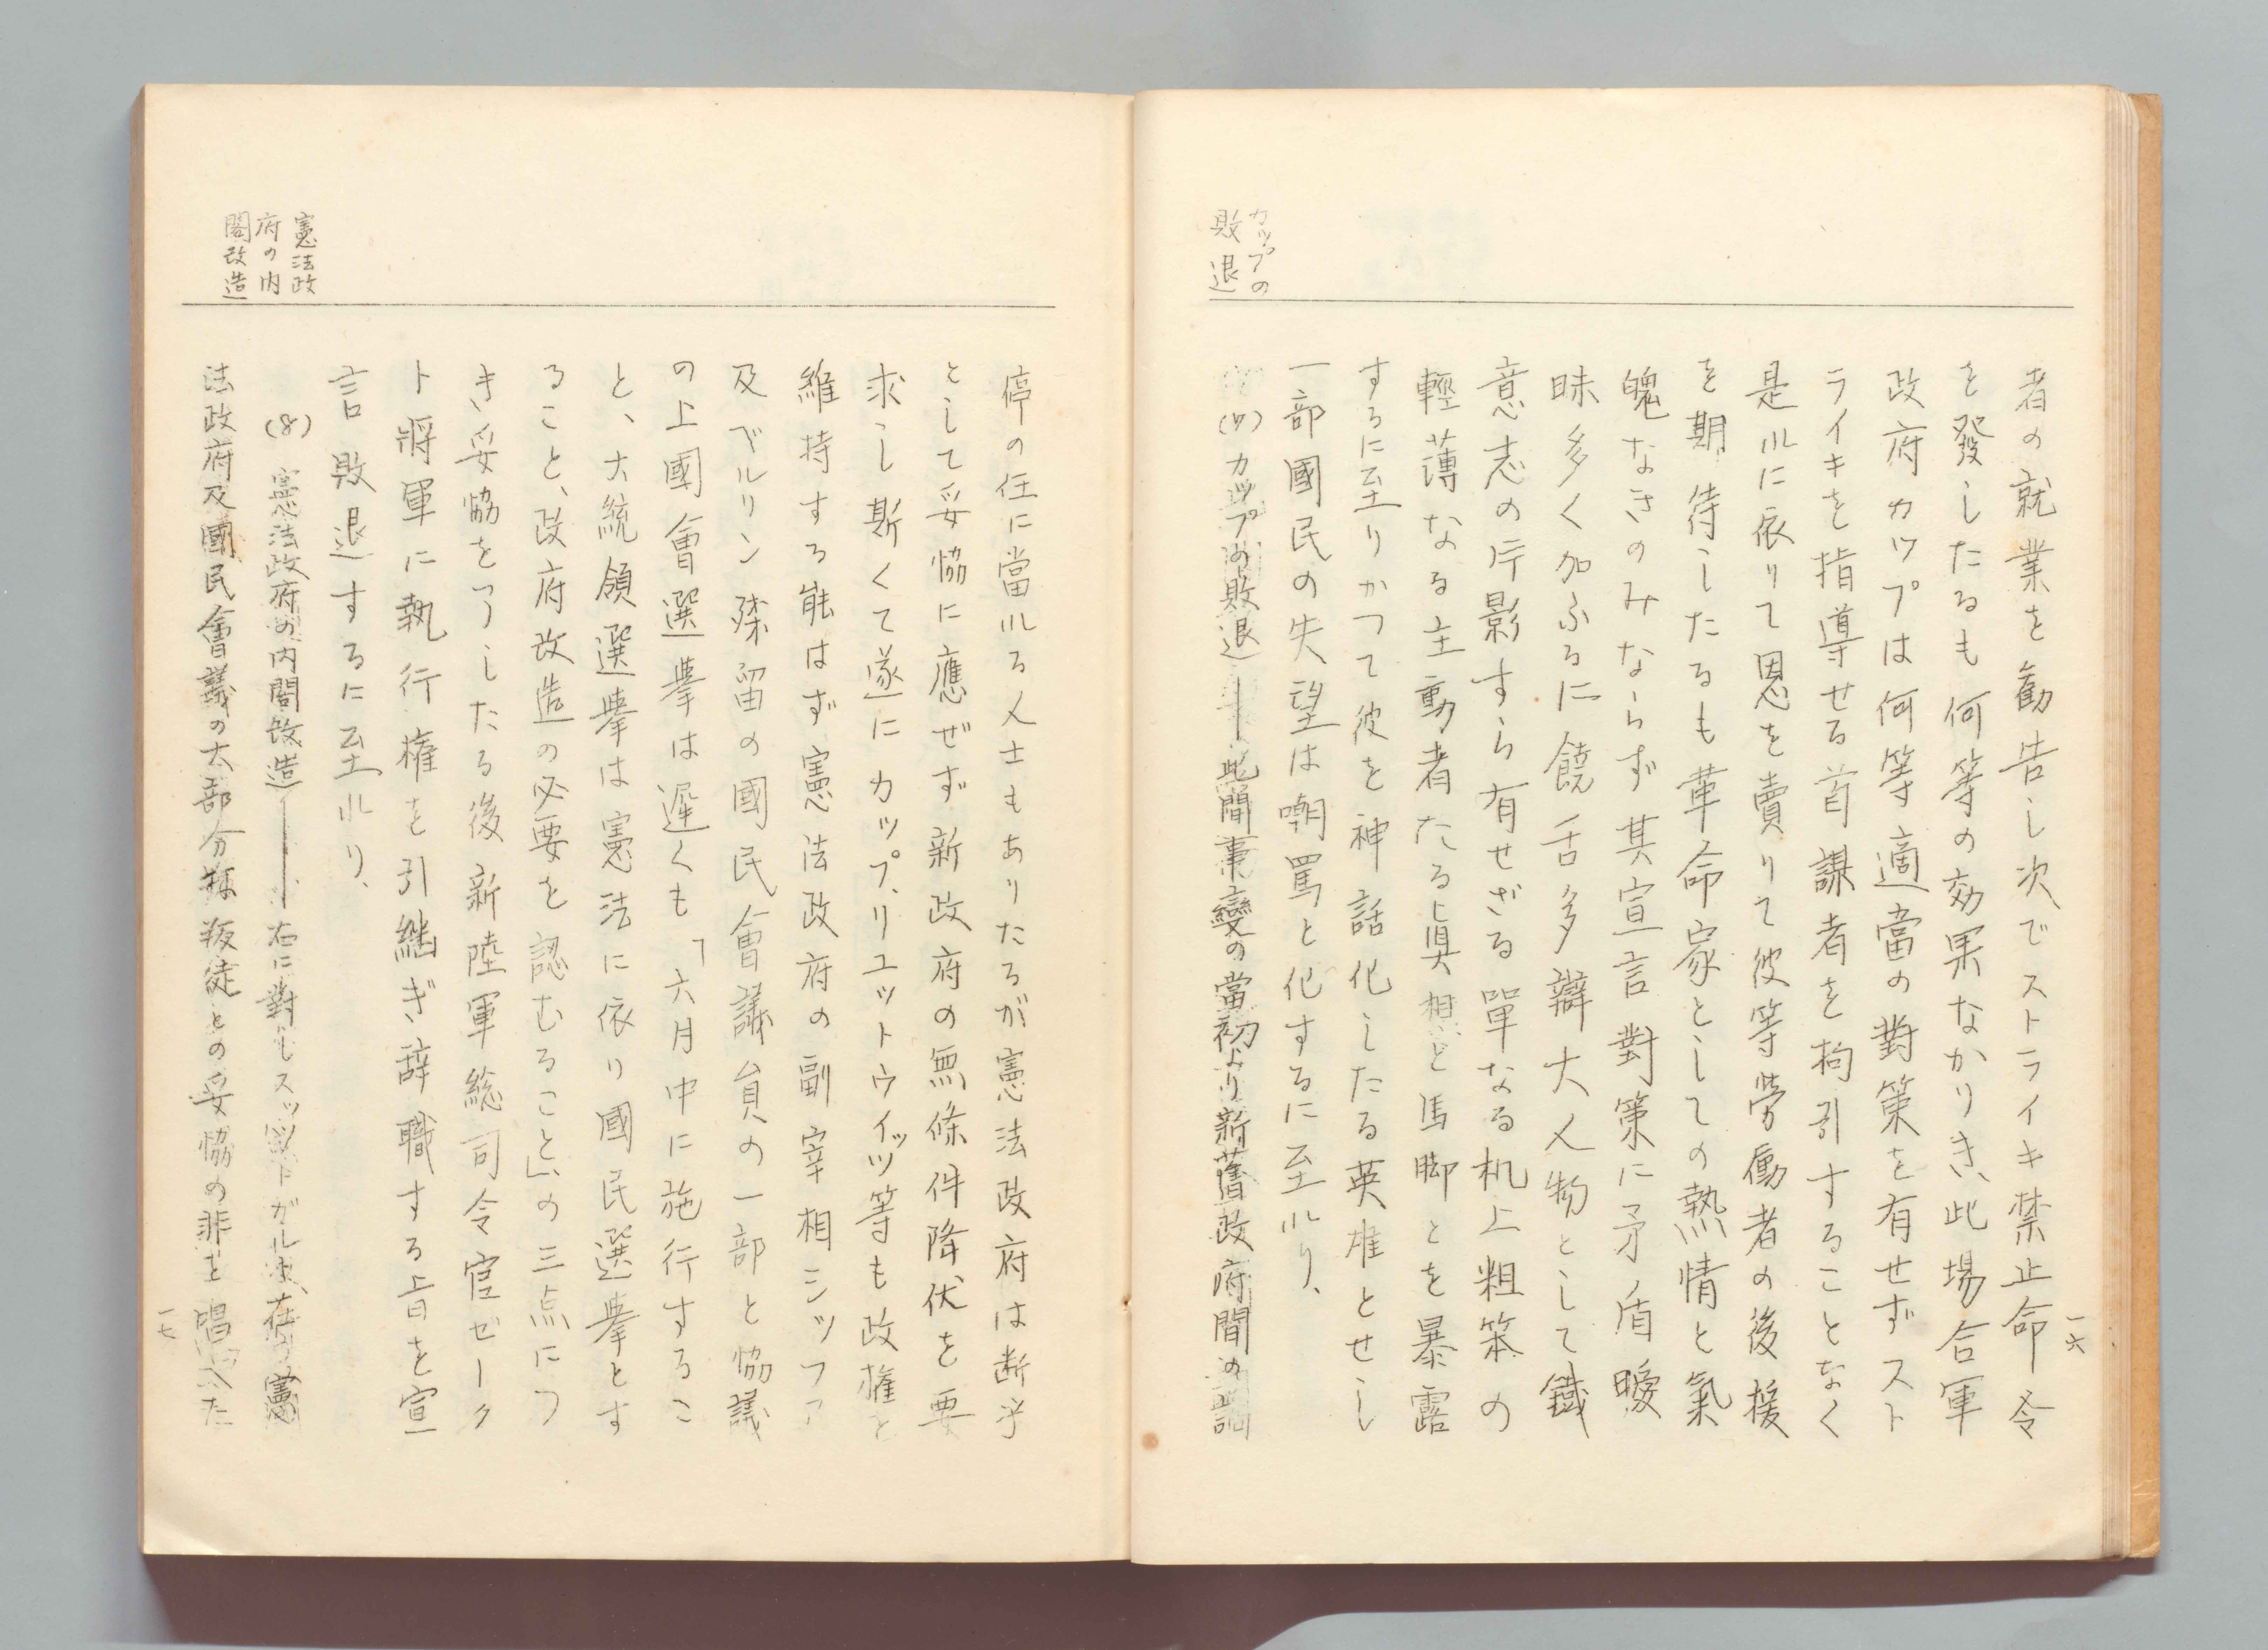 一六
者の就業を勸告し次でストライキ禁止命令
を發したるも何等の効果なかりき、此場合軍
政府カツプは何等適當の對策を有せずスト
ライキを指導せる首謀者を拘引することなく
是れに依りて恩を賣りて彼等労働者の後援
を期待したるも革命家としての熱情と氣
魄なきのみならず其宣言對策に矛盾曖
昧多く加ふるに饒舌多辯大人物として鐵
意志の片影すら有せざる單なる机上粗笨の
輕薄なる主動者たる眞相と馬脚とを暴露
するに至りかつて彼を神話化したる英雄とせし
一部國民の失望は嘲罵と化するに至れり、
カツプの
敗退
(7)カツプの敗退――此間事變の當初より新舊政府間の調
停の任に當れる人士もありたるが憲法政府は断乎
として妥協に應ぜず新政府の無條件降伏を要
求し斯くて遂にカツプ、リユツトウイツツ等も政権を
維持する能はず憲法政府の副宰相シツフア
及ベルリン殘留の國民會議員の一部と協議
の上國會選擧は遲くも「六月中に施行するこ
と、大統領選擧は憲法に依り國民選擧とす
ること、政府改造の必要を認むること」の三点につ
き妥協をつしたる後新陸軍総司令官ゼーク
ト將軍に執行権を引継ぎ辞職する旨を宣
言敗退するに至れり、
憲法政
府の内
閣改造
(8) 憲法政府の内閣改造――右に對しスツツトガルト在憲
法政府及國民會議の大部分は叛徒との妥協の非を唱へた
一七